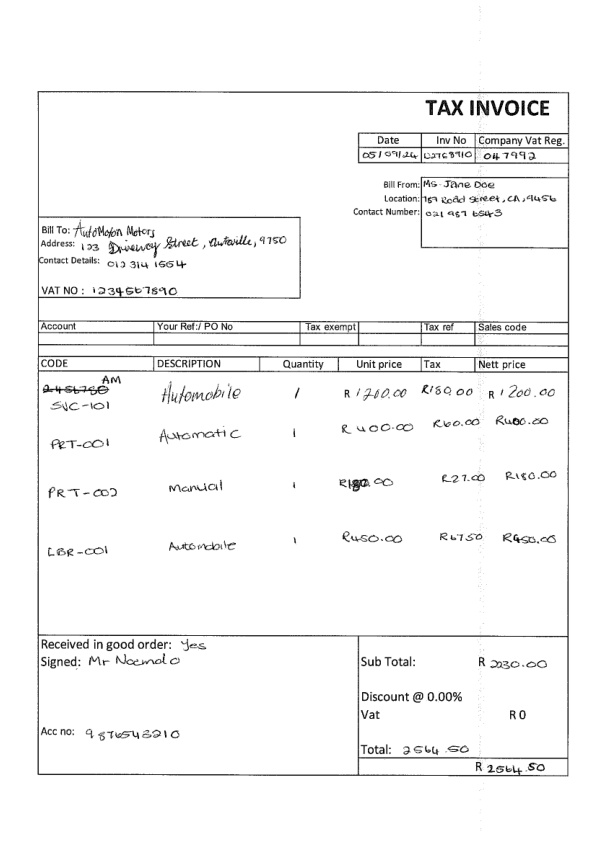 TAX INVOICE
Date Inv No Company Vat Reg.
05/09/24 02768910 047992
Bill From: Ms. Jane Doe
Location: 789 Road Street, CA, 9456
Contact Number: 021 987 6543
Bill To: AutoMoton Motors
Address: 123 Driveway Street, Autoville, 9750
Contact Details: 012 314 1554
VAT NO : 1234567890
Account Your Ref:/ PO No Tax exempt Tax ref Sales code
CODE DESCRIPTION Quantity Unit price Tax Nett price
AM
SVC-101 Automobile 1 R 1200.00 R180.00 R 1200.00
PRT-001 Automatic 1 R 400.00 R60.00 R400.00
PRT-002 Manual 1 R180.00 R27.00 R180.00
LBR-001 Automobile 1 R450.00 R67.50 R450.00
Received in good order: Yes
Signed: Mr
Sub Total: R 2230.00
Discount @ 0.00%
Vat R 0
Acc no: 9876543210
Total: 2564.50
R 2564.50